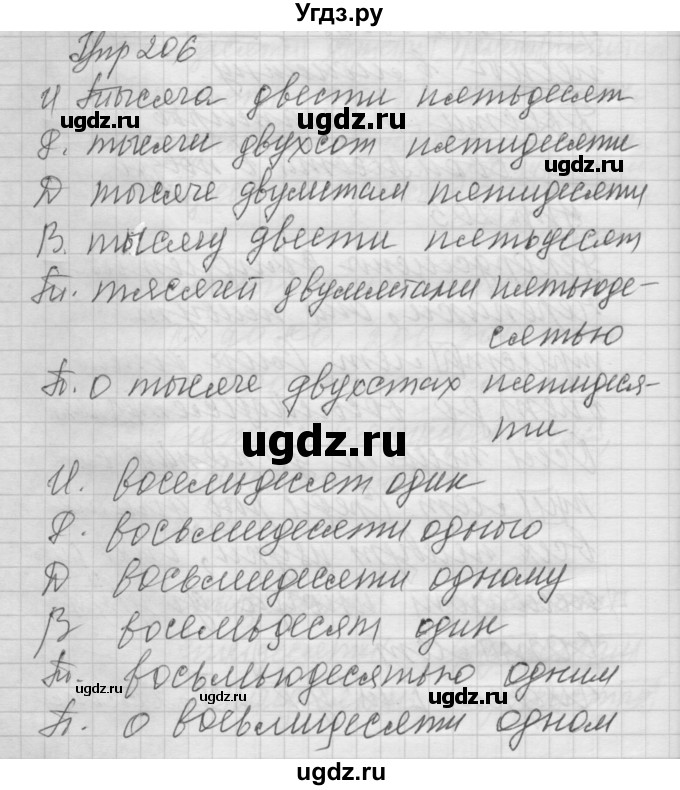 Угдз.ру
Упр 206
И тысяча двести пятьдесят
ugdz.ru ugdz.ru
Р. тысячи двухсот пятидесяти
ugdz.ru
Д тысяче двумстам пятидесяти
В. тысячу двести пятьдесят
Тп. тясячей двумястами пятьюде-
сятью
П. о тысяче двухстах пятидеся-
ти
ugdz.ru
И. восемьдесят один
Р. восьмидесяти одного
Д восьмидесяти одному
В восемьдесят один
Тп. восьмьюдесятью одним
ugdz.ru ugdz.ru ugdz.ru
П. о восьмидесяти одном
ugdz.ru